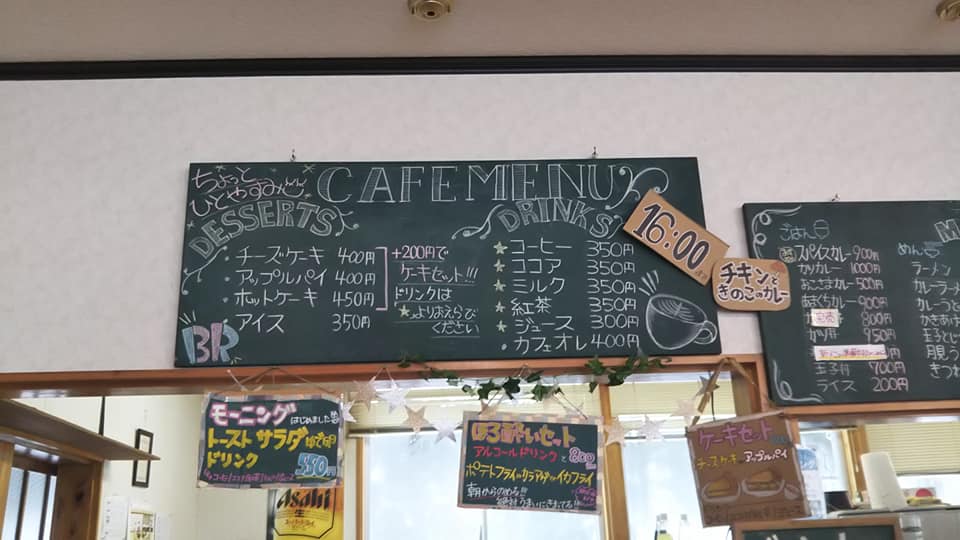 ちょっと
ひとやすみ
CAFE MENU
DESSERTS
・チーズケーキ 400円
・アップルパイ 400円
・ホットケーキ 450円
・アイス 350円
+200円で
ケーキセット!!!
ドリンクは
★よりおえらび
ください
BR
DRINKS
★コーヒー 350円
★ココア 350円
★ミルク 350円
★紅茶 350円
★ジュース 300円
・カフェオレ 400円
16:00
チキンと
きのこのカレー
ごはん
スパイスカレー 900円
カツカレー 1000円
おこさまカレー 500円
あまくちカレー 900円
完売
800円
950円
700円
玉子丼 700円
ライス 200円
めん
ラーメン
カレーラー
カレーう
かきあげ
玉子とじ
月見う
きつね
モーニング
はじめました
トースト サラダ ゆで卵
ドリンク
550円
ほろ酔いセット
アルコールドリンクと
800
ポテトフライorカラアゲorイカフライ
朝からのめる!!!
Asahi
生
ケーキセット
チーズケーキorアップルパイ